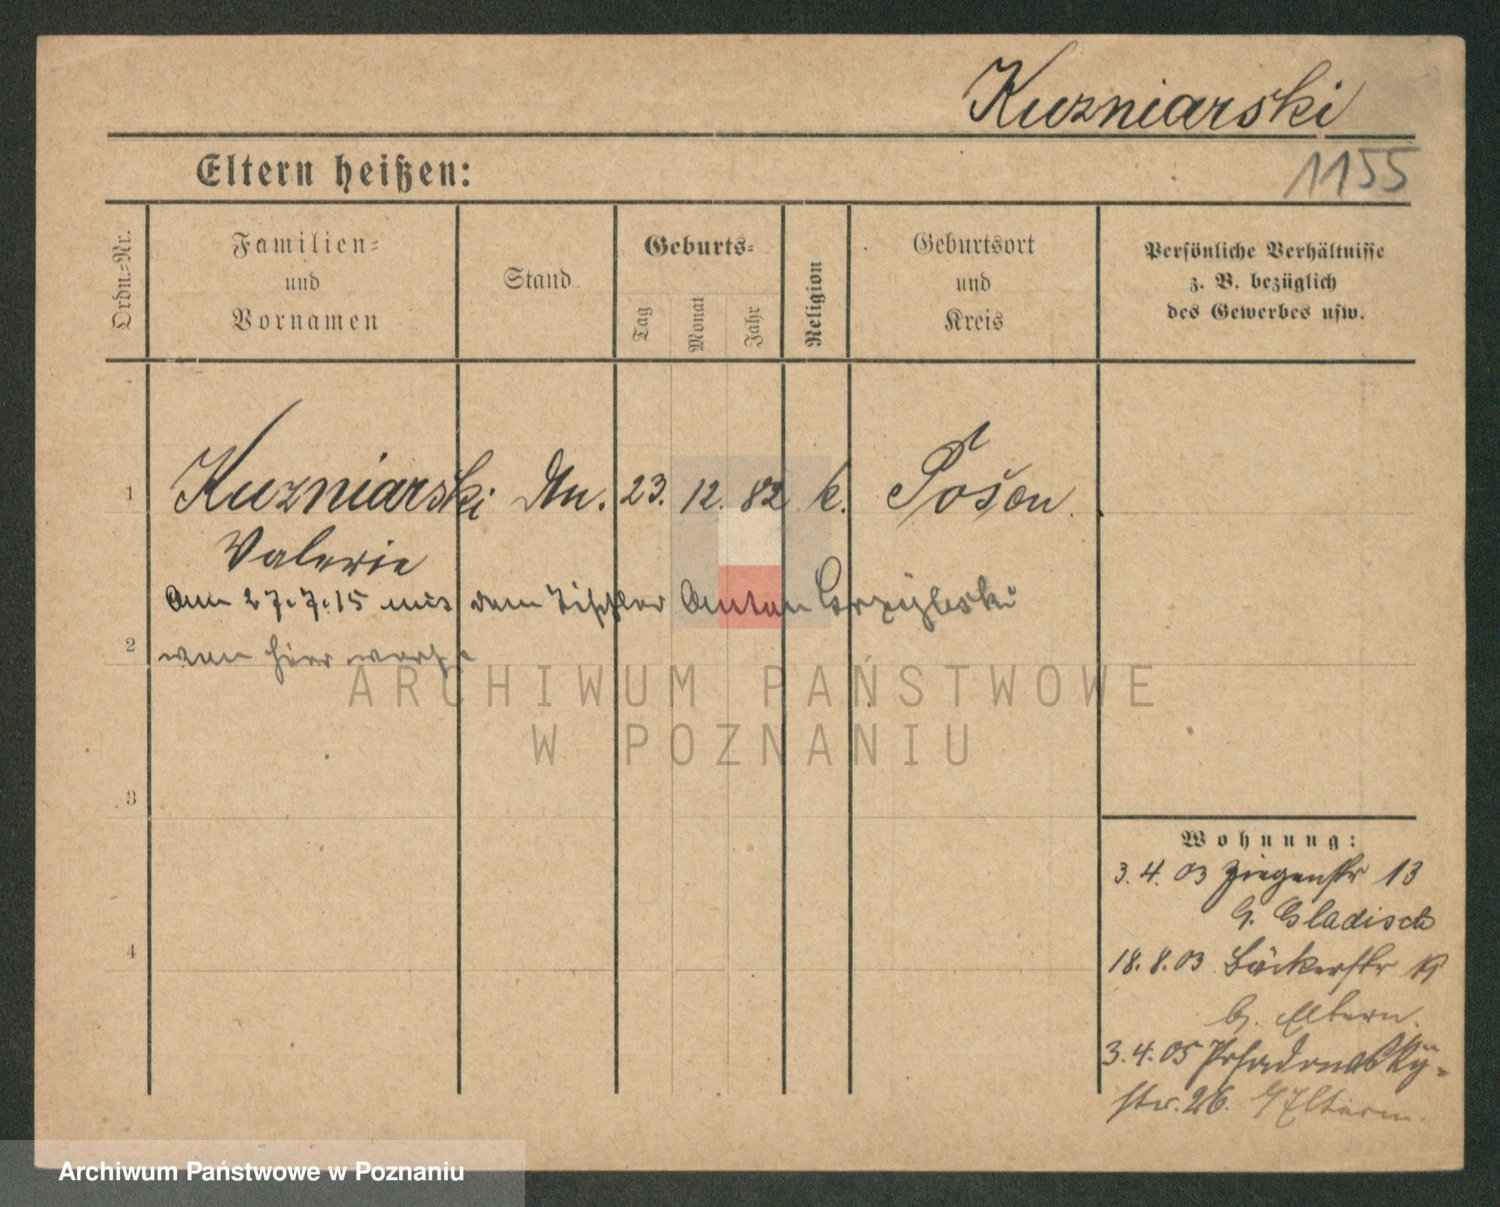 Kuzniarski
Eltern heißen:
1155
Ordn.-Nr.
Familien-
und
Vornamen
Stand
Geburts-
Tag
Monat
Jahr
Religion
Geburtsort
und
Kreis
Persönliche Verhältnisse
z. B. bezüglich
des Gewerbes usw.
1 Kuzniarski 23. 12. 82 k. Posen
Valerie
27.7.15 mit dem Tischler Anton
2 hier
3
4
ARCHIWUM PAŃSTWOWE
W POZNANIU
Wohnung:
3. 4. 03 Ziegenstr 13
Gladisch
18. 8. 03 Bäckerstr
b. Eltern.
3. 4. 05
str. 26. Eltern.
Archiwum Państwowe w Poznaniu